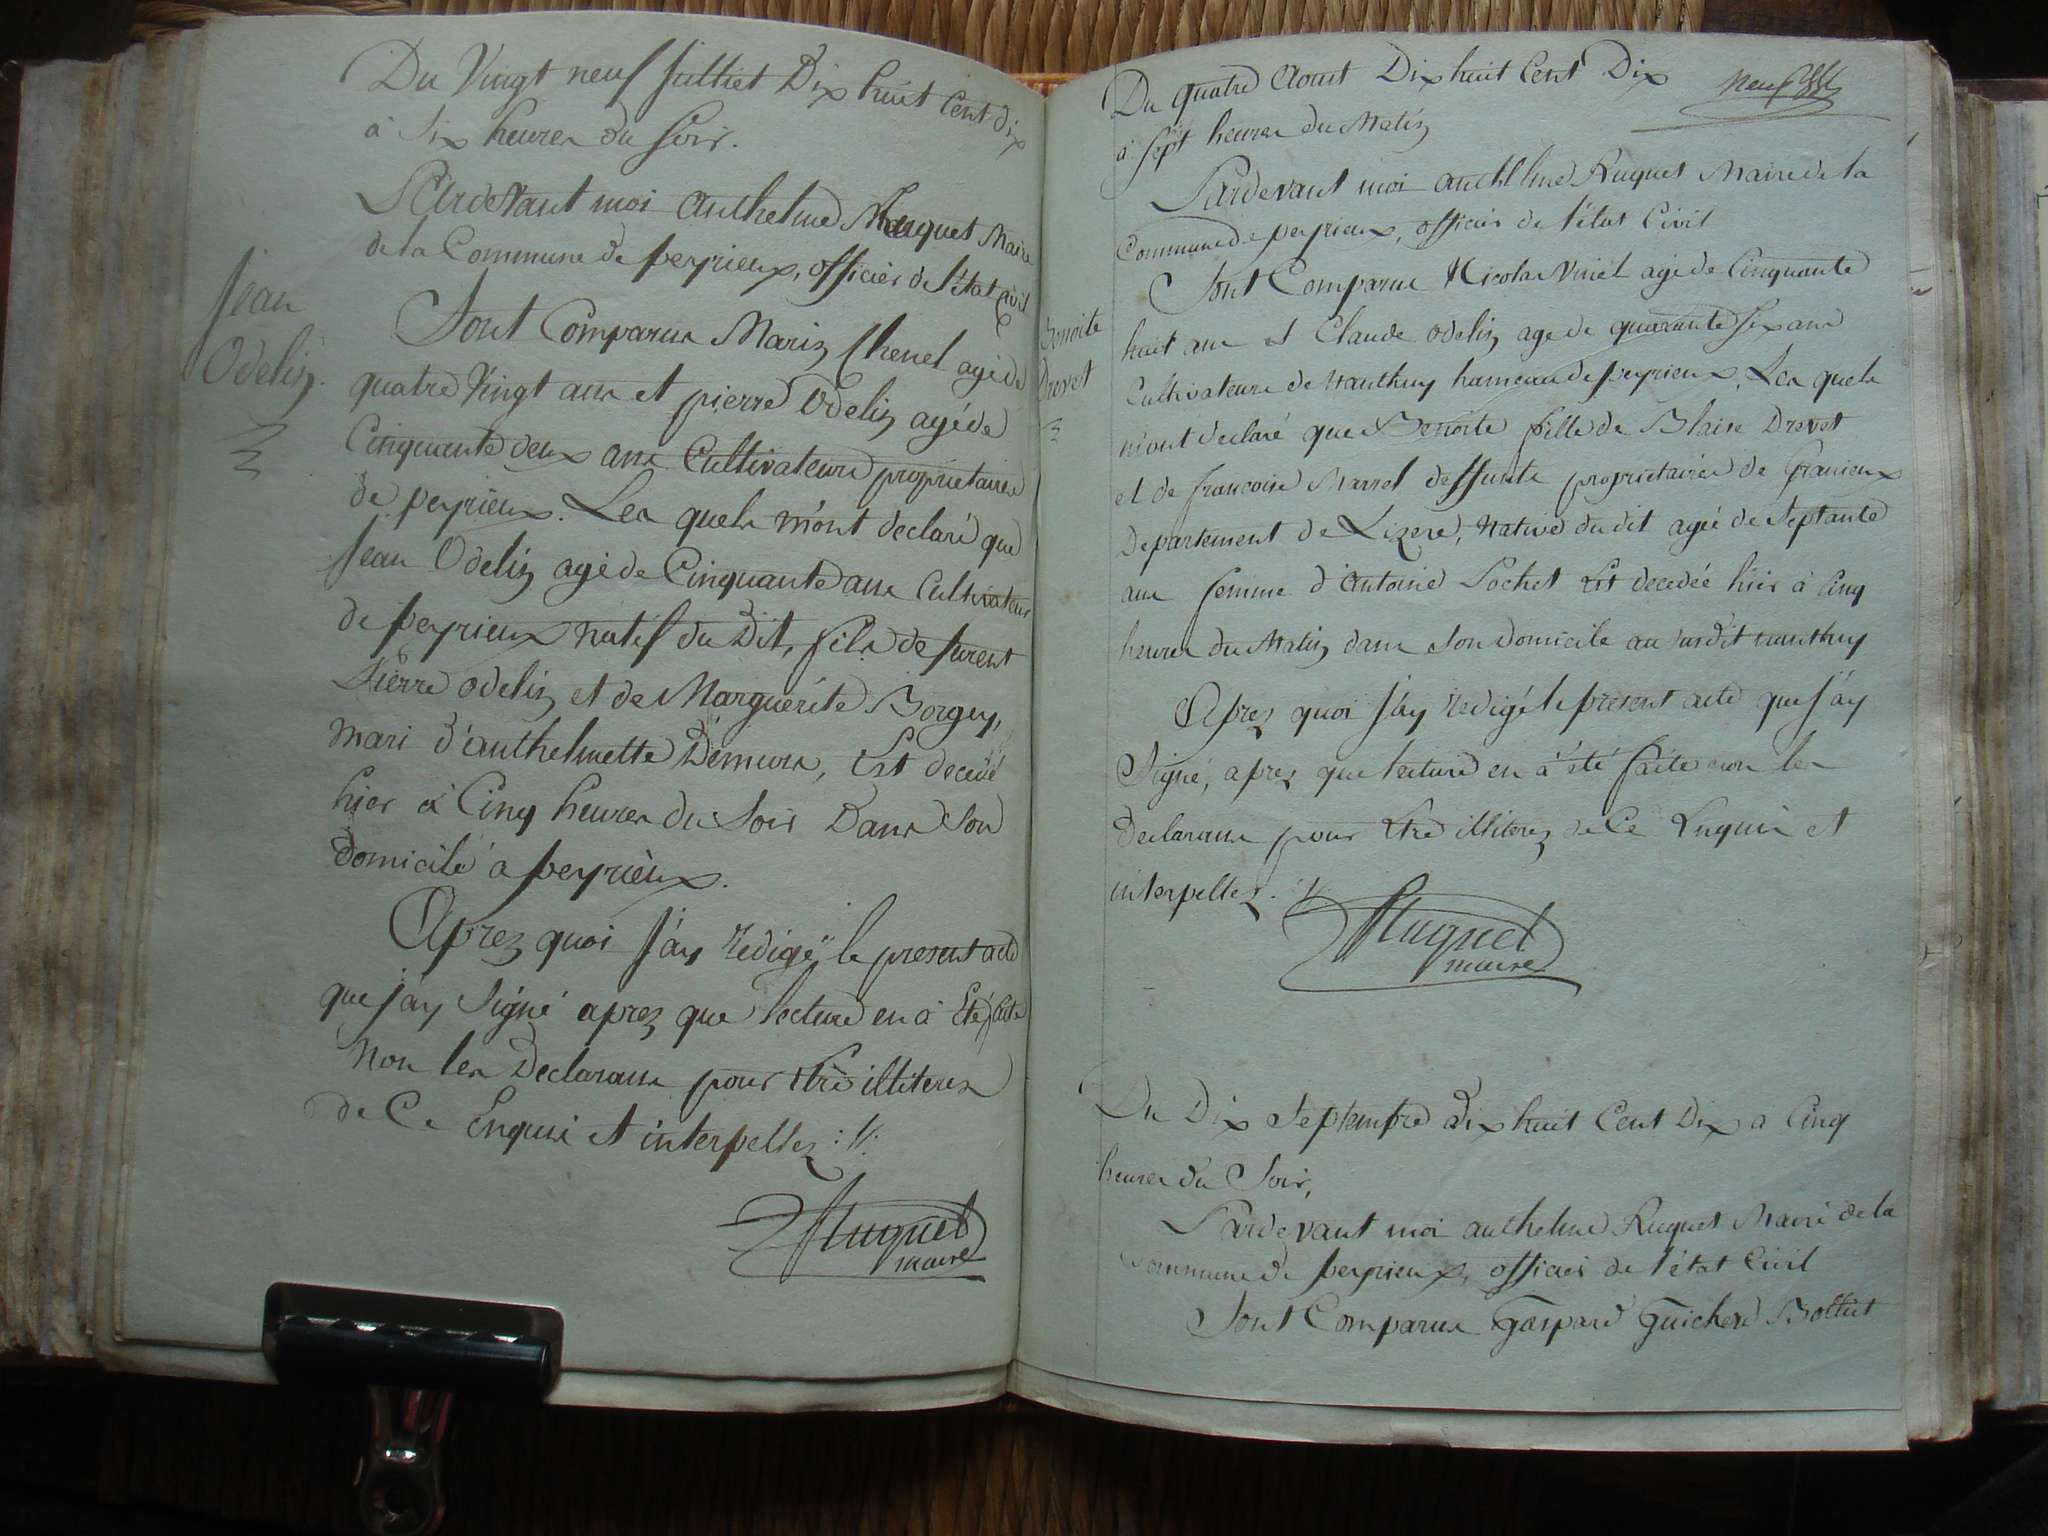 Du Vingt neuf Julliet Dix huit Cent dix
à Six heures du Soir.
Pardevant moi Anthelme Huguet Maire
de la Commune de peyrieux, officier de l'état Civil
Jean
Odelin.
Sont Comparus Marin Chenel agé de
quatre Vingt ans et pierre Odelin agé de
Cinquante deux ans Cultivateurs proprietaires
de peyrieux. Les quels m'ont declaré que
Jean Odelin agé de Cinquante ans Cultivateur
de peyrieux natif du Dit, fils de furent
Pierre odelin et de Marguerite Borgey,
mari d'anthelmette Demeure, Est decedé
hier à Cinq heures du Soir Dans Son
domicile à peyrieux.
Aprez quoi J'ay redigé le present acte
que j'ay Signé aprez que lecture en à Eté faite
Non les Declarans pour être illiterez
de Ce Enquis et interpellez ://:
Huguet
maire
Du quatre Aoust Dix huit Cent Dix
à Sept heures du Matin
Pardevant moi anthelme Huguet Maire de la
Commune de peyrieux, officier de l'état Civil
Benoite
Drevet
Sont Comparus Nicolas Vinet agé de Cinquante
huit ans et Claude odelin age de quarante Six ans
Cultivateurs de Nanthuy hameau de peyrieux. Les quels
m'ont declaré que Benoite fille de Blaise Drevet
et de francoise Marret deffunte proprietaires de Granieux
Departement de Lizere, Native du dit agée de Septante
ans femme d'Antoine Pochet Est decedée hier à Cinq
heures du Matin dans Son domicile au susdit nanthuy
Aprez quoi J'ay redigé le present acte que J'ay
Signé, aprez que lecture en à été faite non les
Declarans pour Etre illiterez de Ce Enquis et
interpellez. //.
Huguet
maire
Du Dix Septembre dix huit Cent Dix a Cinq
heures du Soir,
Pardevant moi anthelme Huguet Maire de la
Commune de peyrieux, officier de l'état Civil
Sont Comparus Gaspard Guicherd Bolliet